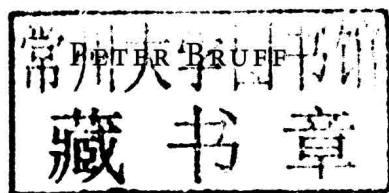 常州大字图书馆
PETER BRUFF
藏书章